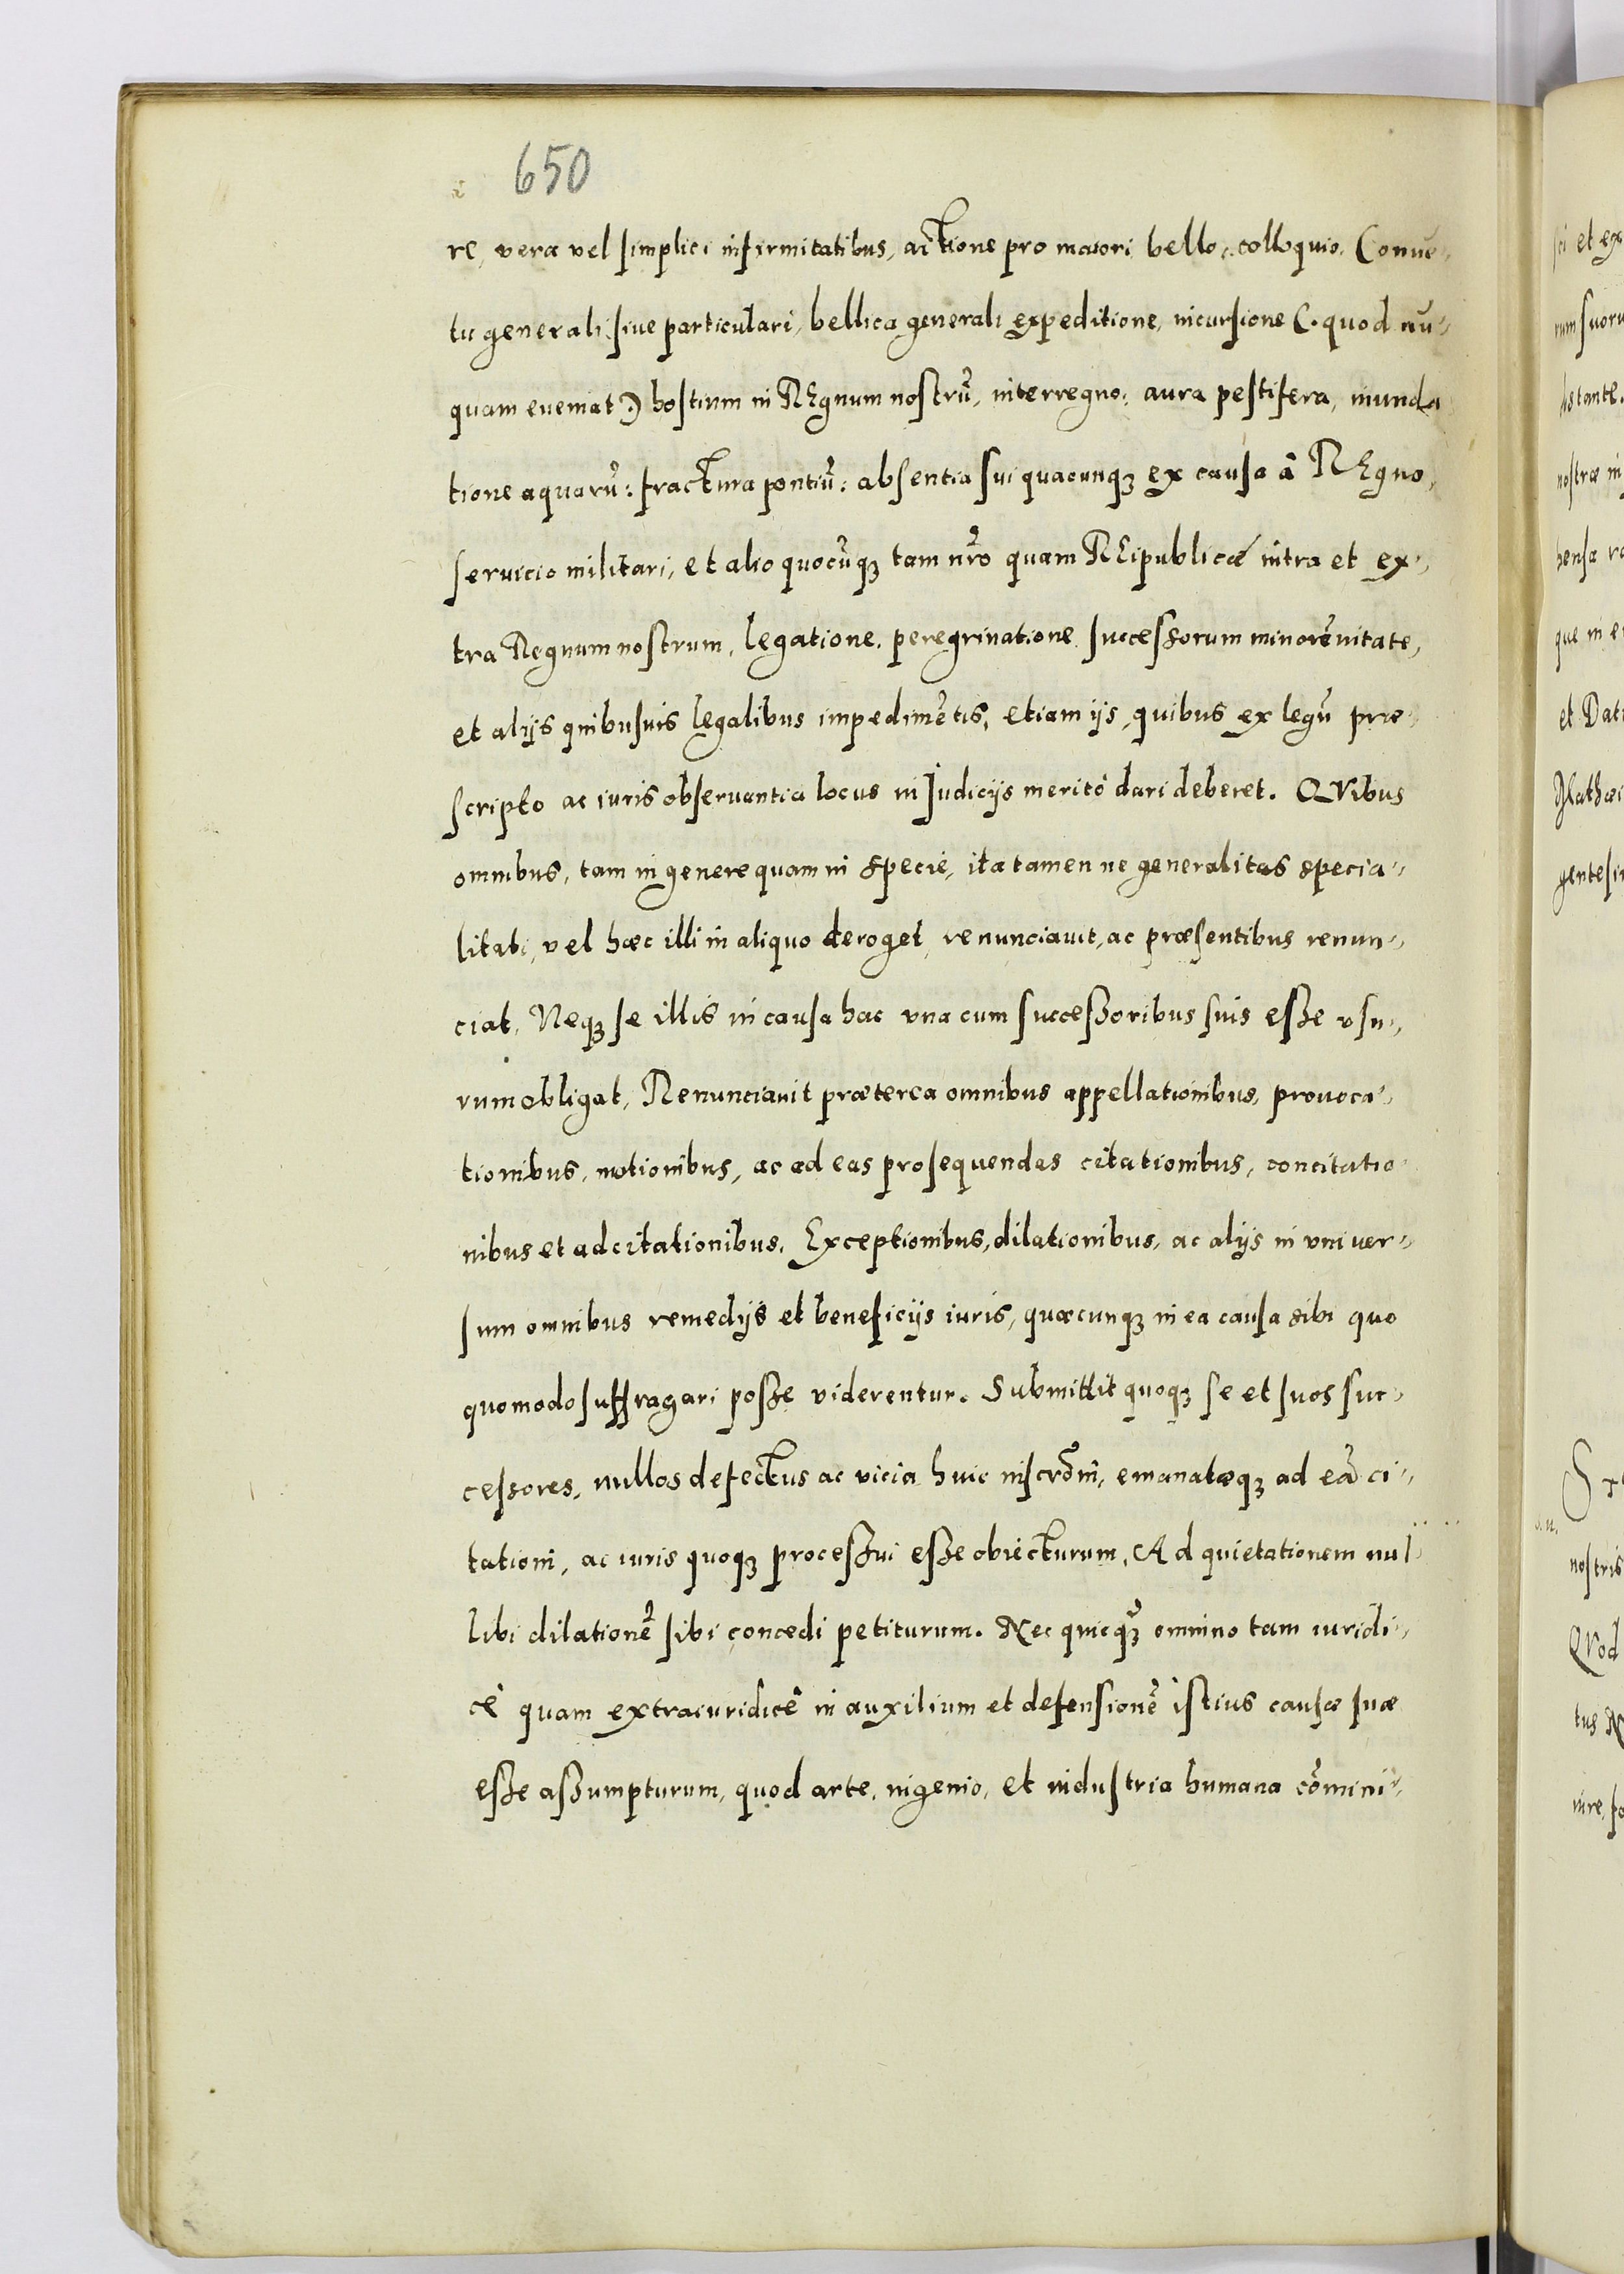 650
re, vera vel simplici infirmitatibus, actione pro maiori, bello, colloquio, Conuē-
tu generali siue particulari, bellica generali expeditione, incursione (. quod nū-
quam eueniat .) hostium in REgnum nostrũ, interregno, aura pestifera, inunda
tione aquarũ: fractura pontiũ: absentia sui quacunqȝ ex causa â REgno,
seruicio militari, et alio quocũqȝ tam nr̃o quam REipublicæ intra et ex-
tra Regnum nostrum, legatione, peregrinatione, successorum minorēnitate,
et alijs quibusuis legalibus impedimẽtis, etiam ijs, quibus ex legũ præ-
scripto ac iuris obseruantia locus in Judicijs meritò dari deberet. QVibus
omnibus, tam in genere quam in specie, ita tamen ne generalitas specia-
litati, vel hæc illi in aliquo deroget, renunciauit, ac præsentibus renun-
ciat, Neqȝ se illis in causa hac vna cum successoribus suis esse vsu-
rum obligat, Renunciauit præterea omnibus appellationibus, prouoca-
tionibus, motionibus, ac ad eas prosequendas citationibus, concitatio-
nibus et adcitationibus, Exceptionibus, dilationibus, ac alijs in vniuer-
sum omnibus remedijs et beneficijs iuris, quæcunqȝ in ea causa sibi quo
quomodo suffragari posse viderentur. Submittit quoqȝ se et suos suc-
cessores, nullos defectus ac vicia huic inscrõni, emanatæqȝ ad eã ci-
tationi, ac iuris quoqȝ processui esse obiecturum, Ad quietationem nul-
libi dilationẽ sibi concedi petiturum. Nec quicqȝ̃ omnino tam iuridi-
cè quam extraiuridicê in auxilium et defensionẽ istius causæ suæ
esse assumpturum, quod arte, ingenio, et industria humana cõmini-